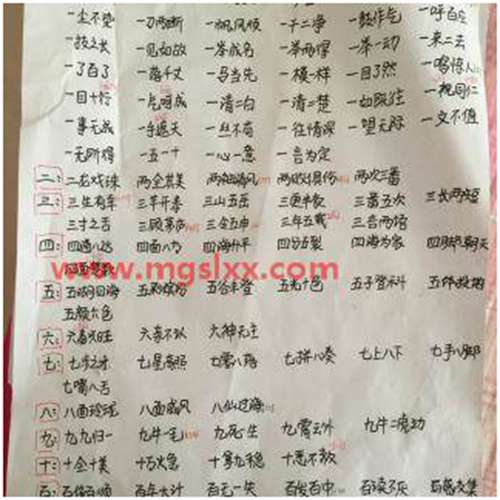 一尘不染 一刀两断 一帆风顺 一干二净 一鼓作气 一呼百应
一技之长 一见如故 一举成名 一举两得 一举一动 一来二去
一了百了 一落千丈 一马当先 一模一样 一目了然 一鸣惊人
一目十行 一气呵成 一清二白 一清二楚 一如既往 一视同仁
一事无成 一手遮天 一丝不苟 一往情深 一望无际 一文不值
一无所得 一五一十 一心一意 一言为定
二: 二龙戏珠 两全其美 两袖清风 两败俱伤 两次三番
三: 三生有幸 三羊开泰 三山五岳 三更半夜 三番五次 三长两短
三寸之舌 三顾茅庐 三令五申 三年五载
四: 四通八达 四面八方 四海升平 四分五裂 四海为家 四脚朝天
www.mgslxx.com
五: 五湖四海 五谷丰登 五光十色 五子登科 五体投地
五颜六色
六: 六畜兴旺 六亲不认 六神无主
七: 七步之才 七星高照 七零八落 七拼八凑 七上八下 七手八脚
七嘴八舌
八: 八面玲珑 八面威风 八仙过海
九: 九九归一 九牛一毛 九死一生 九霄云外 九牛二虎
十: 十全十美 十万火急 十拿九稳 十恶不赦
百: 百依百顺 百年大计 百无一失 百发百中 百读不厌